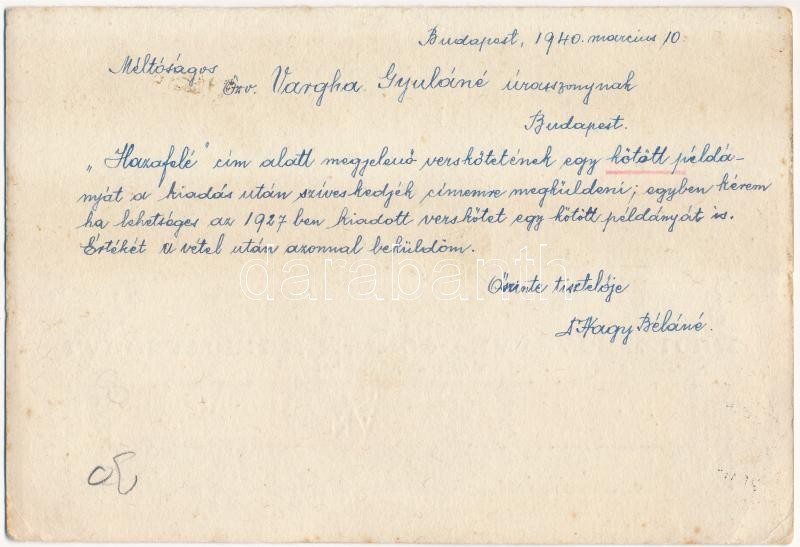 Budapest, 1940. március 10.
Méltóságos
Özv. Vargha Gyuláné úrasszonynak
Budapest.
„Hazafelé" cím alatt megjelenő verskötetének egy kötött példá-
nyját a kiadás után szíveskedjék címemre megküldeni; egyben kérem
ha lehetséges az 1927 ben kiadott verskötet egy kötött példányát is.
Értékét a vétel után azonnal beküldöm.
darabanth
Őszinte tisztelője
Dr Nagy Béláné.